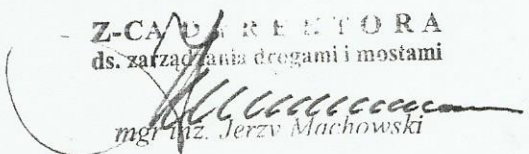 Z-CA DYREKTORA
ds. zarządzania drogami i mostami
mgr inż. Jerzy Machowski